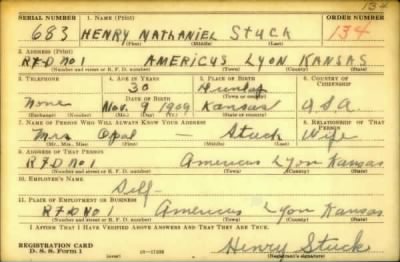 134
SERIAL NUMBER 1. NAME (Print) ORDER NUMBER
683 HENRY NATHANIEL Stuck 134
(First) (Middle) (Last)
2. ADDRESS (Print)
RFD no 1 AMERICUS LYON KANSAS
(Number and street or R. F. D. number) (Town) (County) (State)
3. TELEPHONE 4. AGE IN YEARS 5. PLACE OF BIRTH 6. COUNTRY OF CITIZENSHIP
30 Dunlap
DATE OF BIRTH (Town or county)
None Nov. 9 1909 Kansas USA
(Exchange) (Number) (Mo.) (Day) (Yr.) (State or country)
7. NAME OF PERSON WHO WILL ALWAYS KNOW YOUR ADDRESS 8. RELATIONSHIP OF THAT PERSON
Mrs Opal — Stuck Wife
(Mr., Mrs., Miss) (First) (Middle) (Last)
9. ADDRESS OF THAT PERSON
RFD no 1 Americus Lyon Kansas
(Number and street or R. F. D. number) (Town) (County) (State)
10. EMPLOYER'S NAME
Self-
11. PLACE OF EMPLOYMENT OR BUSINESS
RFD No 1 Americus Lyon Kansas
(Number and street or R. F. D. number) (Town) (County) (State)
I AFFIRM THAT I HAVE VERIFIED ABOVE ANSWERS AND THAT THEY ARE TRUE.
REGISTRATION CARD
D. S. S. Form 1 (over) Henry Stuck
(Registrant's signature)